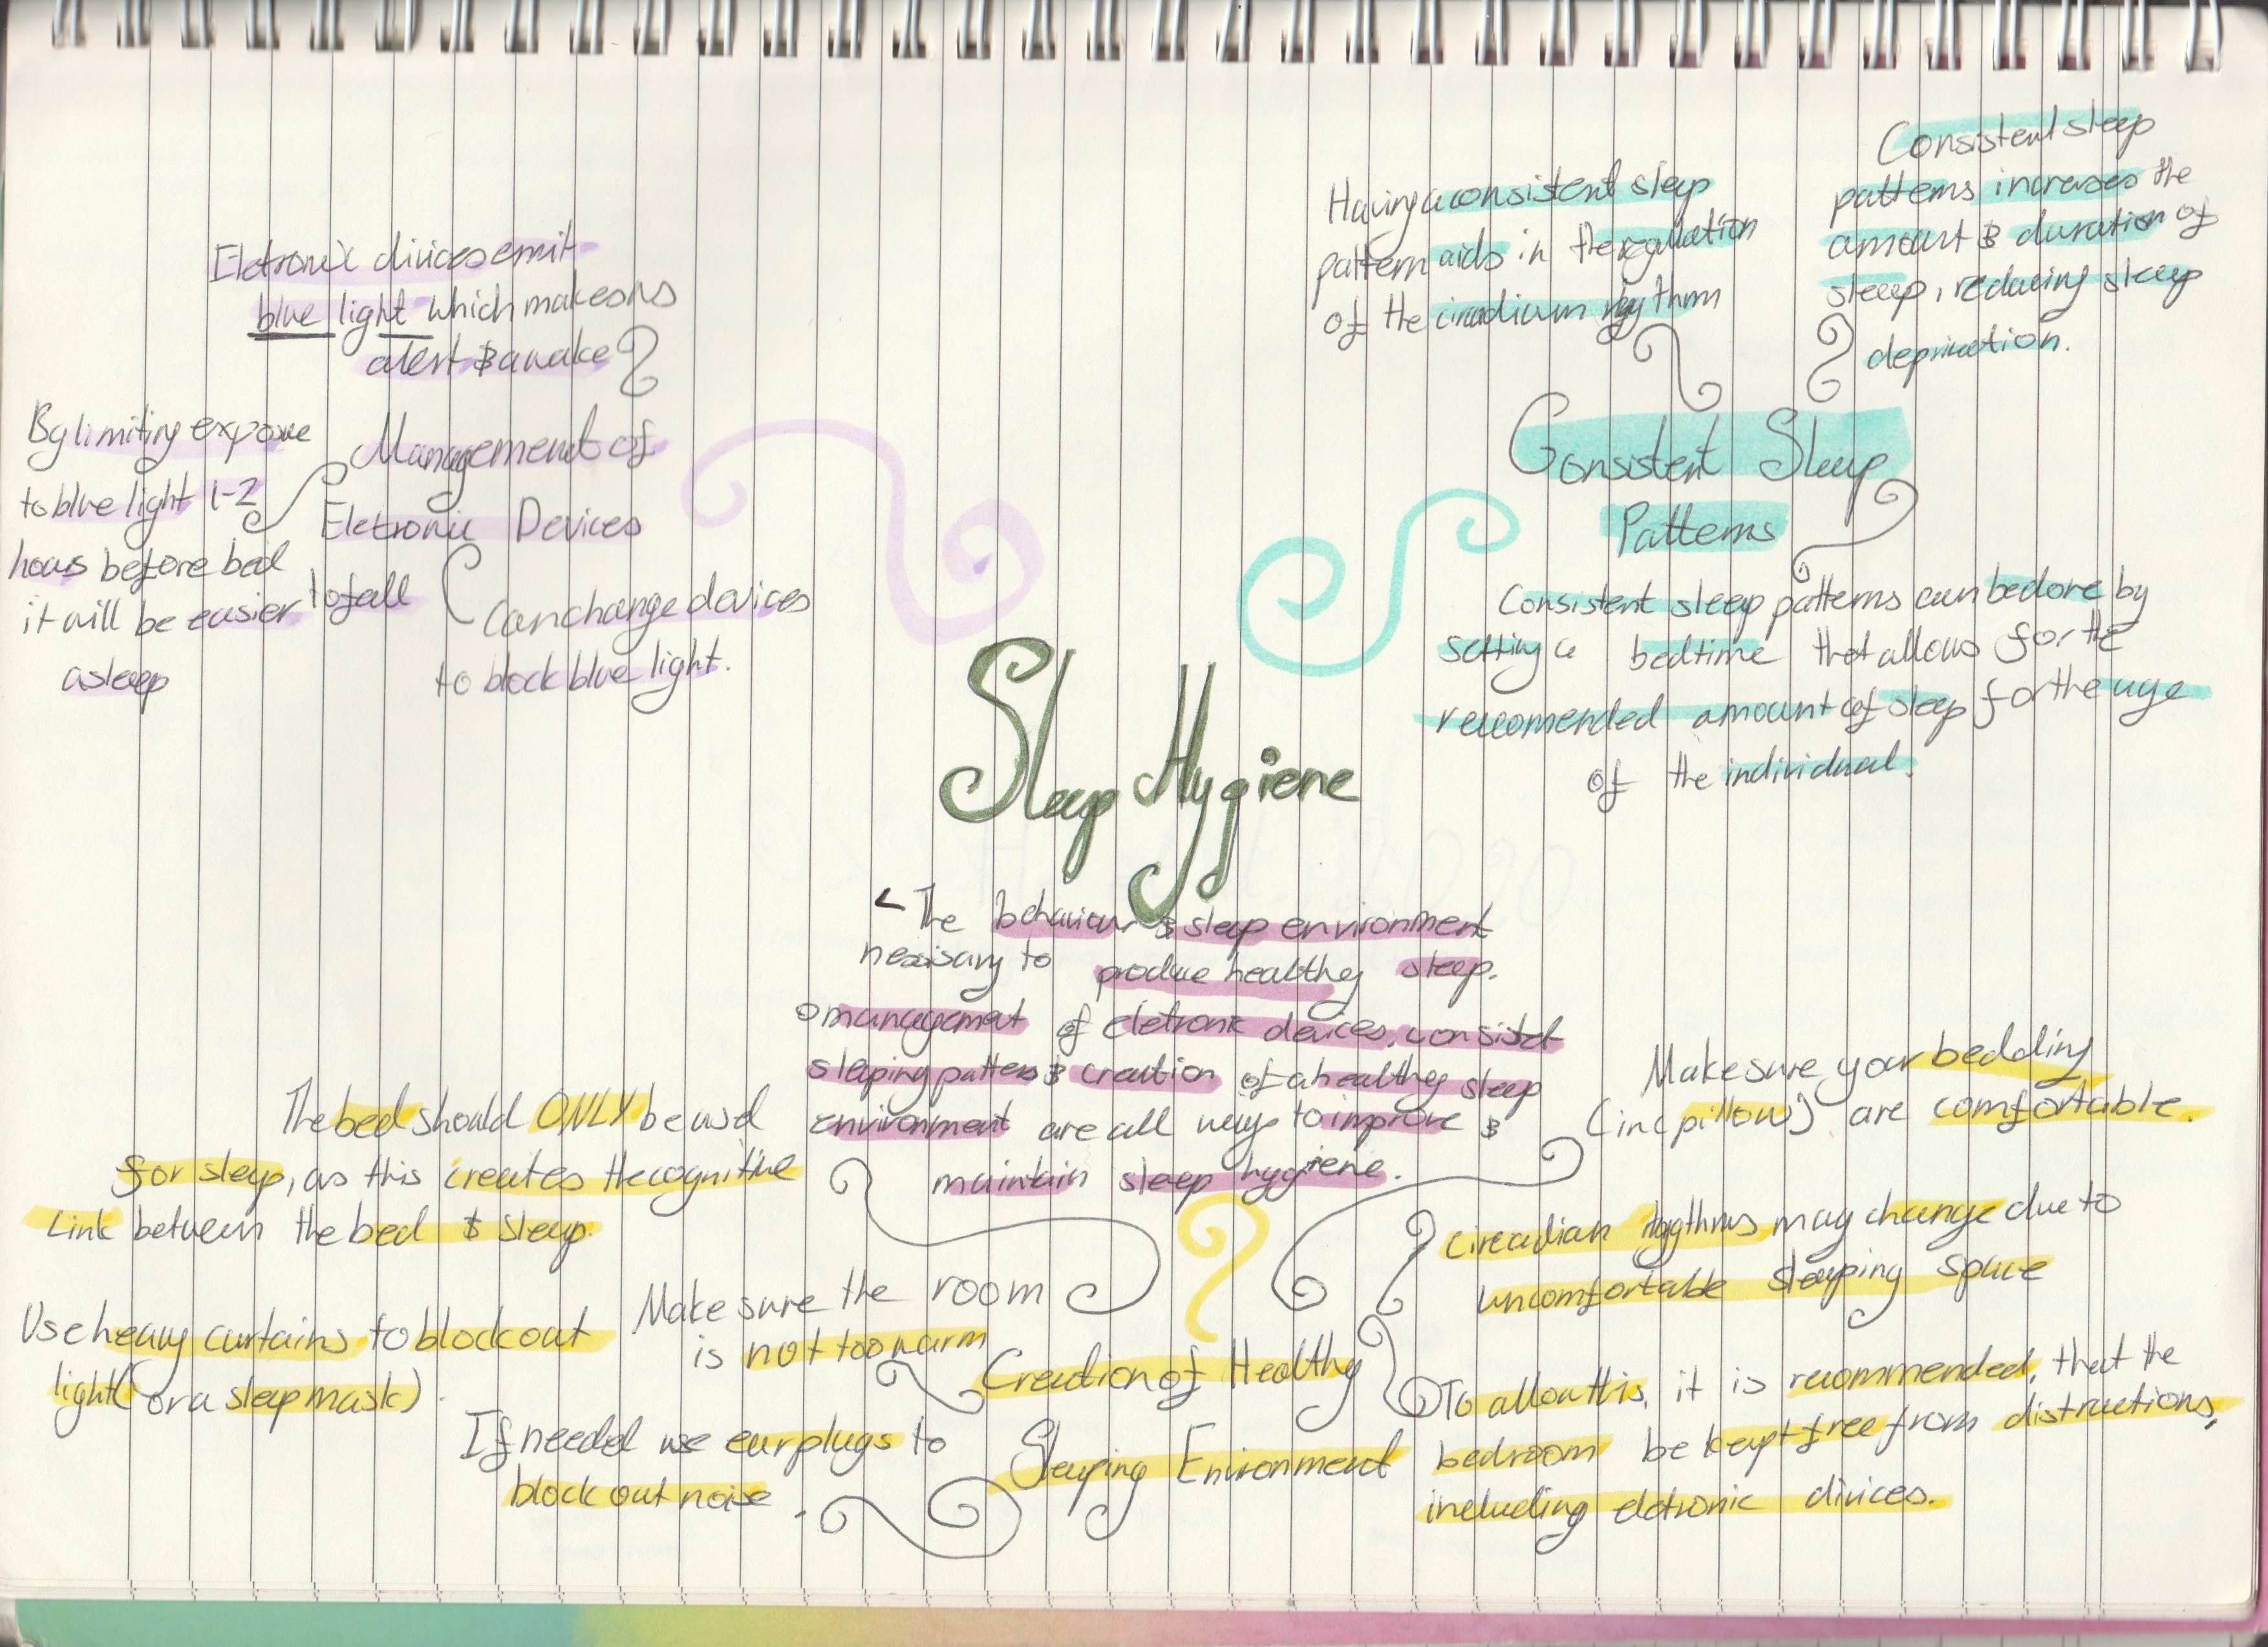 Sleep Hygiene
The behaviour & sleep environment
nessisary to produce healthy sleep.
management of eletronic devices, consistet
sleeping pattens & creation of a healthy sleep
environment are all ways to improve &
maintain sleep hygiene.
Management of
Eletronic Devices
Eletronic divices emit
blue light which makes us
alert & awake
By limiting exposure
to blue light 1-2
hours before bed
it will be easier to fall
asleep
Can change devices
to block blue light.
Consistent Sleep
Patterns
Having a consistent sleep
pattern aids in the regulation
of the circadium rhythm
Consistent sleep
patterns increases the
amount & duration of
sleep, reducing sleep
deprivation.
Consistent sleep patterns can be done by
setting a bedtime that allows for the
recomended amount of sleep for the age
of the individual.
Creation of Healthy
Sleeping Enironment
The bed should ONLY be used
for sleep, as this creates the cognitive
Link between the bed & sleep.
Use heavy curtains to block out
light (or a sleep mask).
Make sure the room
is not too warm
If needed use earplugs to
block out noise.
Make sure your bedding
(inc pillow) are comfortable.
Circadian rhythms may change due to
uncomfortable sleeping space
To allow this, it is recommended, that the
bedroom be kept free from distractions,
including eletronic divices.